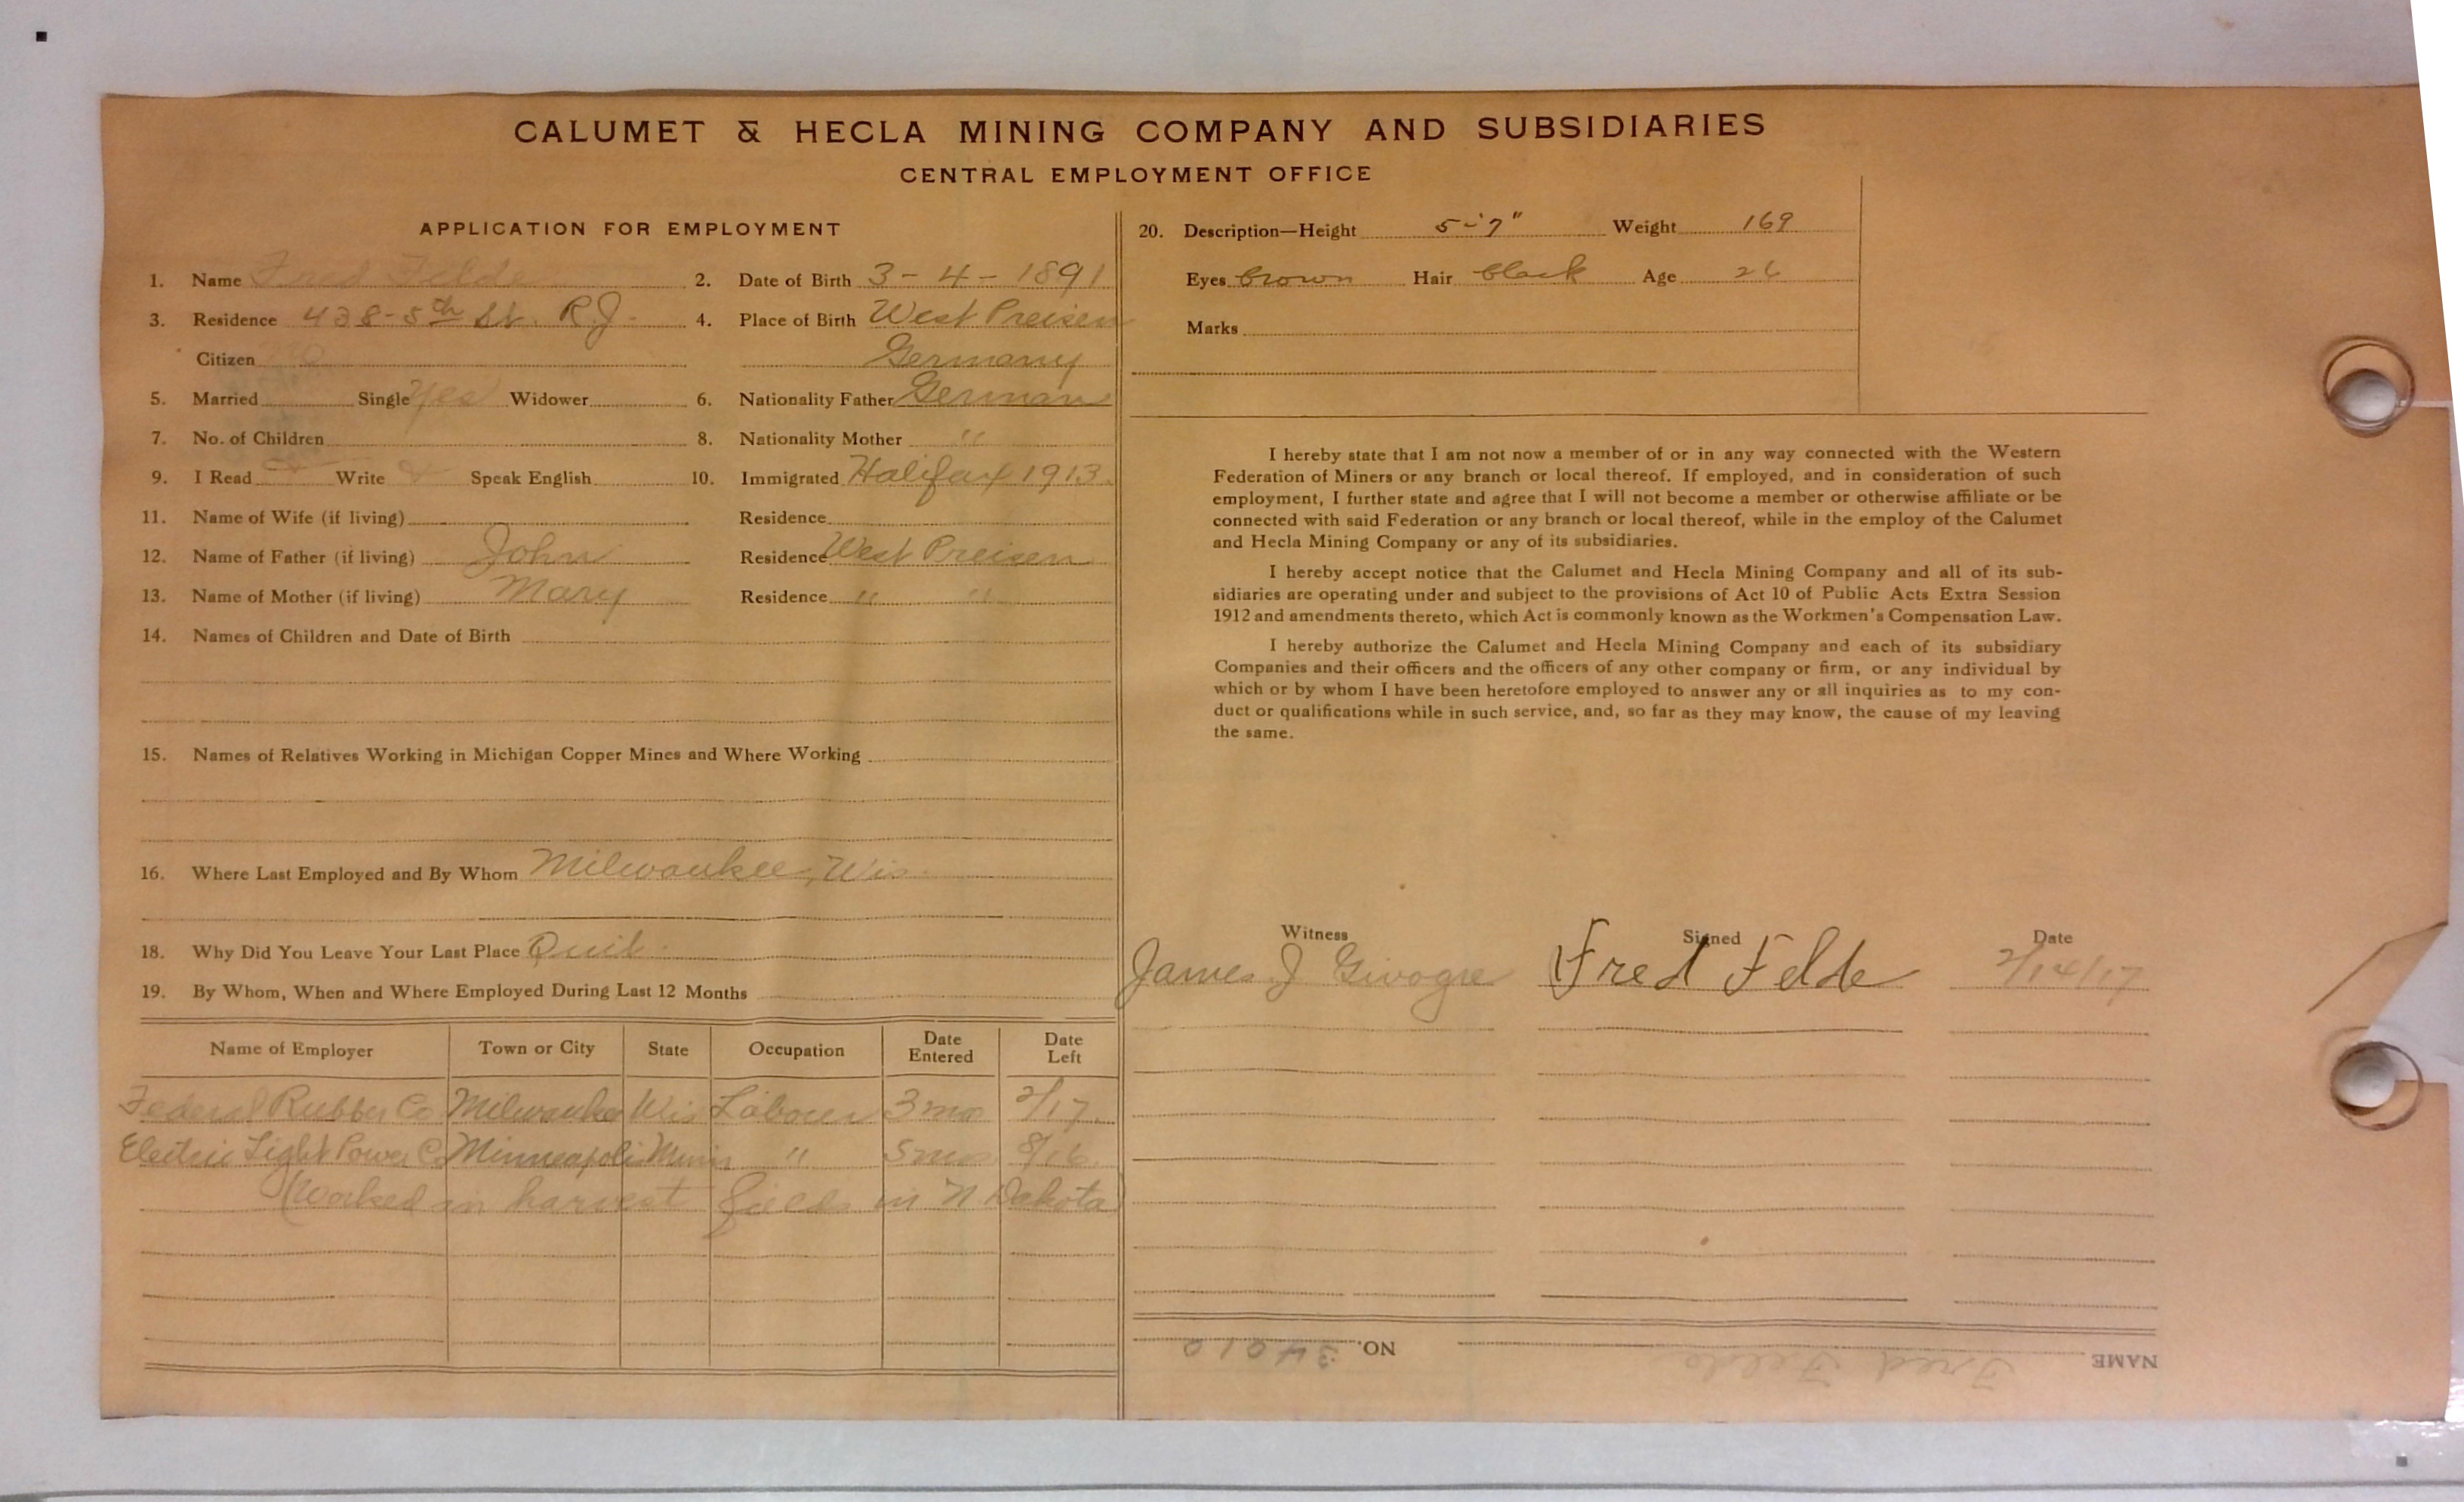 CALUMET & HECLA MINING COMPANY AND SUBSIDIARIES
CENTRAL EMPLOYMENT OFFICE
APPLICATION FOR EMPLOYMENT
1. Name Fred Felde 2. Date of Birth 3-4-1891
3. Residence 438-5th St. R.J. 4. Place of Birth West Preisen
Citizen Germany
5. Married Single Yes Widower 6. Nationality Father German
7. No. of Children 8. Nationality Mother "
9. I Read Write Speak English 10. Immigrated Halifax 1913.
11. Name of Wife (if living) Residence
12. Name of Father (if living) John Residence West Preisen
13. Name of Mother (if living) Mary Residence " "
14. Names of Children and Date of Birth
15. Names of Relatives Working in Michigan Copper Mines and Where Working
16. Where Last Employed and By Whom Milwaukee, Wis.
18. Why Did You Leave Your Last Place Quit.
19. By Whom, When and Where Employed During Last 12 Months
Name of Employer Town or City State Occupation Date Entered Date Left
Federal Rubber Co Milwaukee Wis Labourer 3 mo 2/17.
Electric Light Power Co Minneapolis Minn " 5 mos 8/16.
(Worked in harvest fields in N Dakota)
20. Description—Height 5-'7" Weight 169
Eyes brown Hair black Age 26
Marks
I hereby state that I am not now a member of or in any way connected with the Western
Federation of Miners or any branch or local thereof. If employed, and in consideration of such
employment, I further state and agree that I will not become a member or otherwise affiliate or be
connected with said Federation or any branch or local thereof, while in the employ of the Calumet
and Hecla Mining Company or any of its subsidiaries.
I hereby accept notice that the Calumet and Hecla Mining Company and all of its sub-
sidiaries are operating under and subject to the provisions of Act 10 of Public Acts Extra Session
1912 and amendments thereto, which Act is commonly known as the Workmen's Compensation Law.
I hereby authorize the Calumet and Hecla Mining Company and each of its subsidiary
Companies and their officers and the officers of any other company or firm, or any individual by
which or by whom I have been heretofore employed to answer any or all inquiries as to my con-
duct or qualifications while in such service, and, so far as they may know, the cause of my leaving
the same.
Witness Signed Date
James J Givogre Fred Felde 2/14/17
NAME Fred Felde NO. 34010